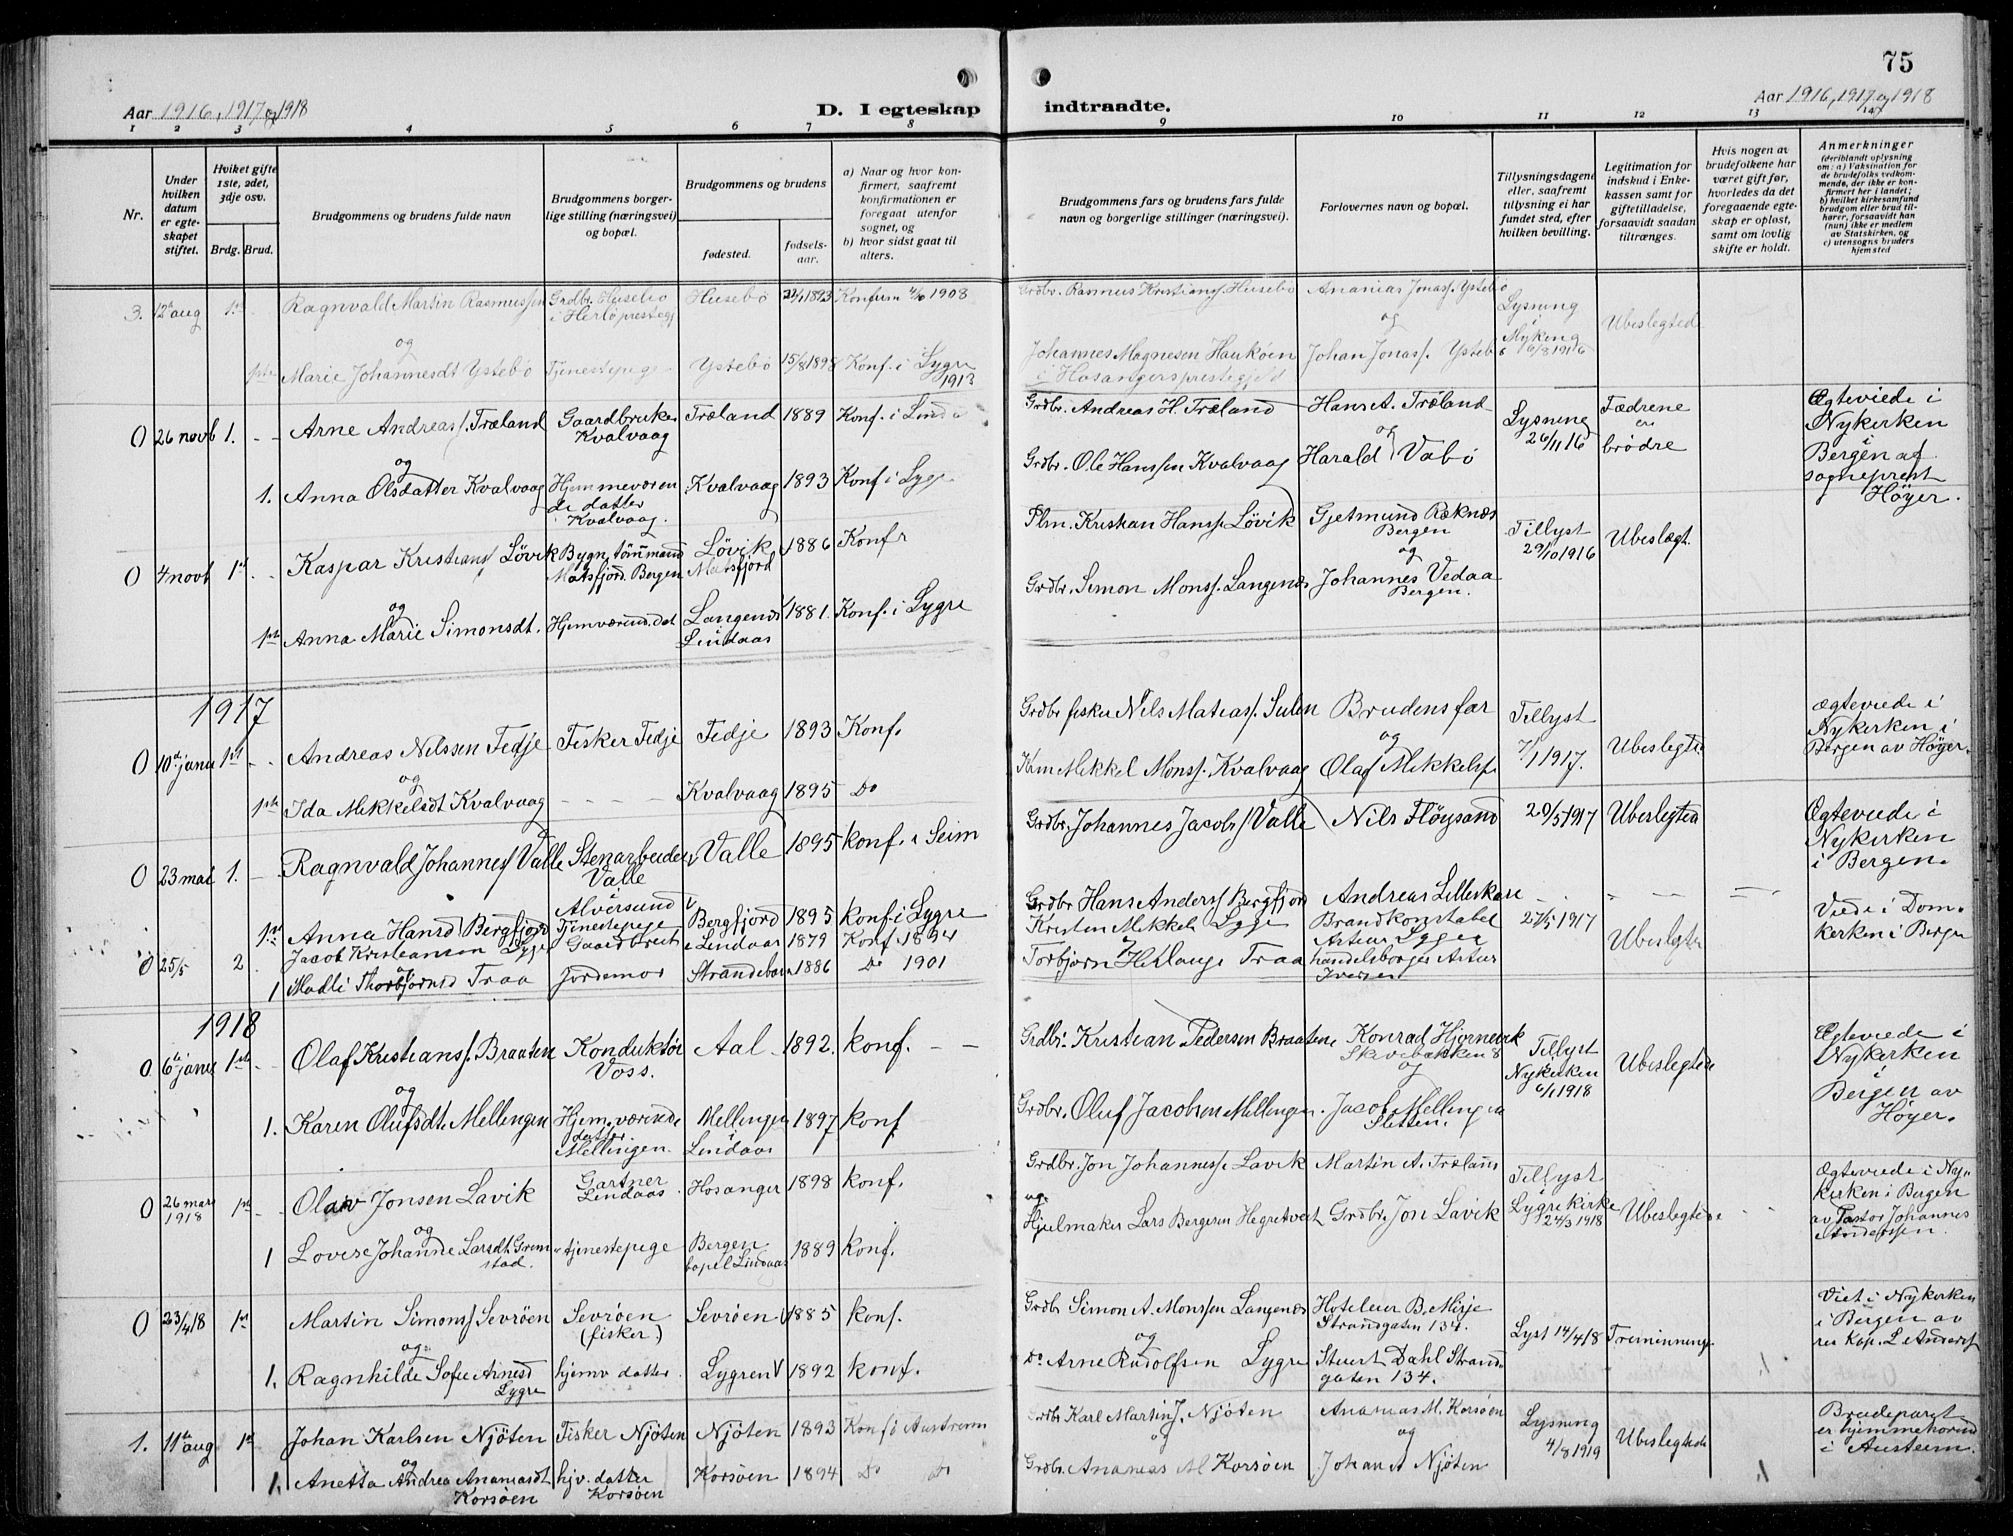 75
Aar 1916, 1917 og 1918
D. I egteskap
indtraadte.
Aar 1916, 1917 og 1918
1 2 3 4 5 6 7 8
9 10 11 12 13 14
Nr.
Under hvilken datum er egteskapet stiftet.
Hviket gifte 1ste, 2det, 3dje osv.
Brdg. Brud.
Brudgommens og brudens fulde navn
Brudgommens borgerlige stilling (næringsvei) og bopæl.
Brudgommens og brudens
fødested.
fødselsaar.
a) Naar og hvor konfirmert, saafremt konfirmationen er foregaat utenfor sognet, og
b) hvor sidst gaat til alters.
Brudgommens fars og brudens fars fulde navn og borgerlige stillinger (næringsvei).
Forlovernes navn og bopæl.
Tillysningsdagene eller, saafremt tillysning ei har fundet sted, efter hvilken bevilling.
Legitimation for indskud i Enkekassen samt for giftetilladelse, forsaavidt saadan tiltrænges.
Hvis nogen av brudefolkene har været gift før, hvorledes da det foregaaende egteskap er opløst, samt om lovlig skifte er holdt.
Anmerkninger
(deriblandt oplysning om: a) Vaksination for de brudefolks vedkommende, der ikke er konfirmert her i landet; b) hvilket kirkesamfund brudgom eller brud tilhører, forsaavidt han (hun) ikke er medlem av Statskirken, og c) utensogns bruders hjemsted
3. 12te aug 1ste Ragnvald Martin Rasmussen Grdbr. Husebø i Herløprestegj Husebø 1893 Konfirm 1908 Grdbr. Rasmus Kristians. Husebø Ananias Jonas. Ystebø Lysning i Myking 6/8 1916 Ubeslegted
og
1ste Marie Johannesdt Ystebø Tjenestepige Ystebø 15/8 1898 Konf. i Lygre 1913 Johannes Magnesen Haukøen i Hosangersprestegjeld og Johan Jonas. Ystebø
0 26 novb 1. - - Arne Andreas. Træland Gaardbruker Kvalvaag Træland 1889 Konf. i Linds Grdbr. Andreas H. Træland Hans A. Træland Lysning 26/11 16 Fædrene ere brødre Ægteviede i Nykerken i Bergen af sogneprest Höyer.
og
1. Anna Olsdatter Kvalvaag Hjemmeværende datter Kvalvaag. Kvalvaag 1893 Konf i Lygr Grdbr. Ole Hanssen Kvalvaag og Harald Vabø
0 4 novb 1st - - Kaspar Kristians. Løvik Bygn. tømmermand Matsfjord. Bergen Løvik Matsfjord 1886 Konfr Plm. Kristian Hans. Løvik Gjetmund Ræknes Bergen Tillyst 29/10 1916 Ubeslægt.
og
1ste Anna Marie Simonsdt. Hjemværend. dat Langenes Lindaas 1881. Konf. i Lygre Grdbr. Simon Mons. Langenes og Johannes Vedaa Bergen.
1917
0 10de janu 1ste - - Andreas Nilssen Fedje Fisker Fedje Fedje 1893 Konf. Grdbr fisker Nils Matias. Sulen Brudens far Tillyst 7/1 1917. Ubeslegte ægteviede i Nykerken i Bergen av Höyer.
og
1ste Ida Mikkelsdt Kvalvaag - - - - Kvalvaag 1895 Do Mikkel Mons. Kvalvaag og Olaf Mikkels.
0 23 mai 1. - Ragnvald Johannes. Valle Stenarbeider Valle Alversund Valle 1895 konf. i Seim Grdbr. Johannes Jacobs. Valle Nils Fløysand 20/5 1917 Ubeslegted Ægteviede i Nykerken i Bergen.
1ste Anna Hansd Bergfjord Tjenestepige Bergfjord i Lindaas 1895 konf. i Lygre Grdbr Hans Anders. Bergfjord Andreas Lilleskare
0 25/5 2 Jacob Kristiansen Lygre Gaardbruker 1879 Konf. 1894 Kristen Mikkels Lygre Brandkonstabel Artur Lygre 27/5 1917 Ubeslegte Viede i Domkerken i Bergen
og
1 Madli Thorbjørnsd Traa Jordemor Strandebarm 1886 Do 1901 Torbjørn Traa handelsborger Artur Iversen
1918
0 6te janu 1ste - Olaf Kristians. Braaten Konduktør Voss. Aal 1892. Konf. - - Grdbr. Kristian Pedersen Braaten Konrad Hjørnevik Skivebakken 8 Tillyst Nykerken 6/1 1918 Ubeslegtede Ægteviede i Nykerken i Bergen av Höyer.
og
1. Karen Olufsdt. Mellingen Hjemværende datter Mellingen Mellingen i Lindaas 1897 Konf Grdbr. Oluf Jacobsen Mellingen og Jacob Mellingen Sletten.
0 26 mars 1918 1ste - - Olav Jonsen Lavik Gartner Lindaas Hosanger 1898 Konf. Grdbr. Jon Johannes. Lavik Martin A. Træland Tillyst i Lygrekirke 24/3 1918 Ubeslegtede Ægteviede i Nykerken i Bergen av Pastor Johannes Anderssen.
og
1 Lovise Johanne Larsdt Gremstad. tjenestepige Bergen bopel Lindaas 1889 Konf. Hjulmaker Lars Bergersen Hegretveit Grdbr. Jon Lavik
0 23/4 18 1ste Martin Simons. Sevrøen Sevrøen (fisker) Sevrøen 1885 konf. Grdbr Simon A. Monssen Langenes Hoteleier B. Mirje Strandgaten 134. Lyst 14/4 18 Tremenninger Viet i Nykerken i Bergen av res Kap. L. Anderss
og
1. Ragnhilde Sofie Arnesd Lygre hjemv datter Lygren 1892 konf. Do Arne Rudolfsen Lygre Stuert Dahl Strandgaten 134.
1. 11te aug 1st Johan Karlsen Njøten Fisker Njøten Njøten 1893 Konf i Austreim Grdbr Karl Martin J. Njøten Ananias M. Korsøen Lysning 4/8 1919 Ubeslegtede Brudeparet er hjemmehørend i Austreim.
og
1. Anetta Andrea Ananiasdt Korsøen hjv. datter Korsøen Korsøen 1894 Do Do Grdbr. Ananias M Korsøen og Johan A Njøten